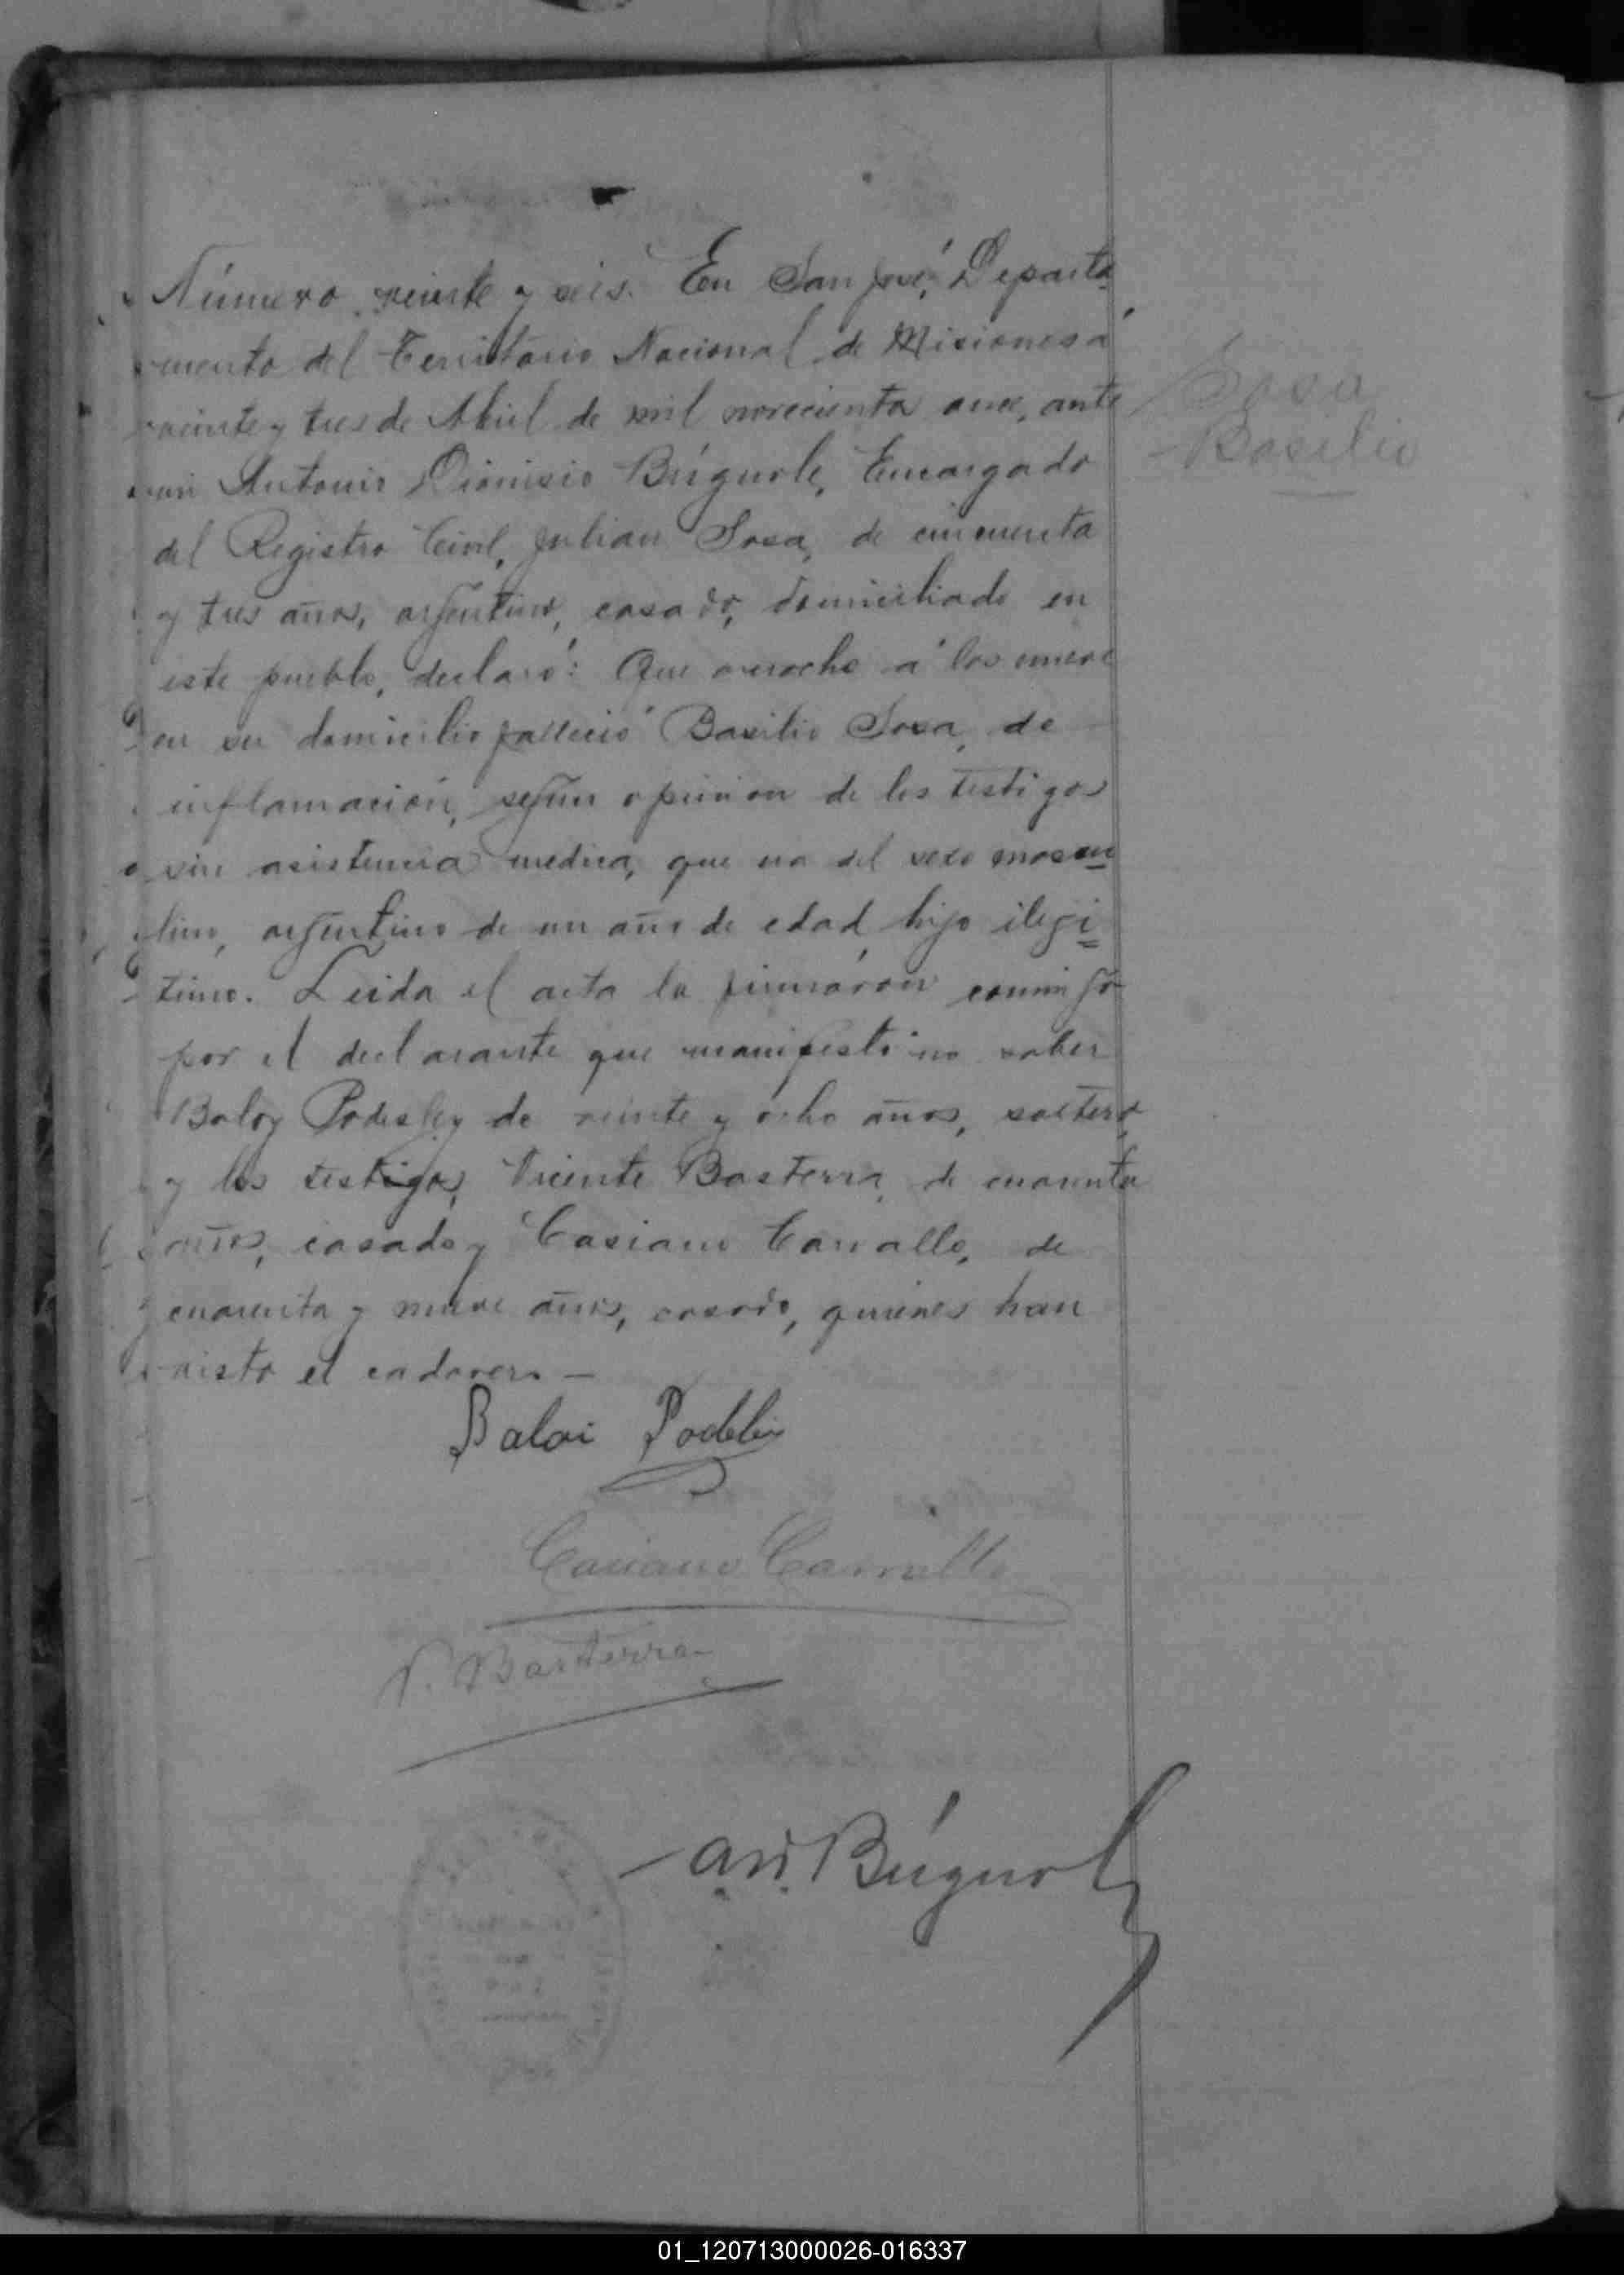 Número veinte y seis. En San José, Departa
mento del Territorio Nacional de Misiones á
veinte y tres de Abril de mil novecientos once, ante
mi Antonio Dionisio Búgnole, Encargado
del Registro Civil, Julian Sosa, de cincuenta
y tres años, argentino, casado, domiciliado en
este pueblo, declaró: Que anoche á las nueve
en su domicilio falleció Basilio Sosa, de
inflamación, segun opinion de los testigos
sin asistencia medica, que era del sexo mascu
lino, argentino de un año de edad, hijo ilegi
timo. Leida el acta la firmáron conmigo
por el declarante que manifestó no saber
Baloy Podesley de veinte y ocho años, soltero,
y los testigos, Vicente Basterra, de cuarenta
años, casado y Casiano Carvallo, de
cuarenta y nueve años, casado, quienes han
visto el cadaver. —
Sosa
Basilio
Baloi
Casiano Carvallo
V. Basterra
Búgnol
01_120713000026-016337